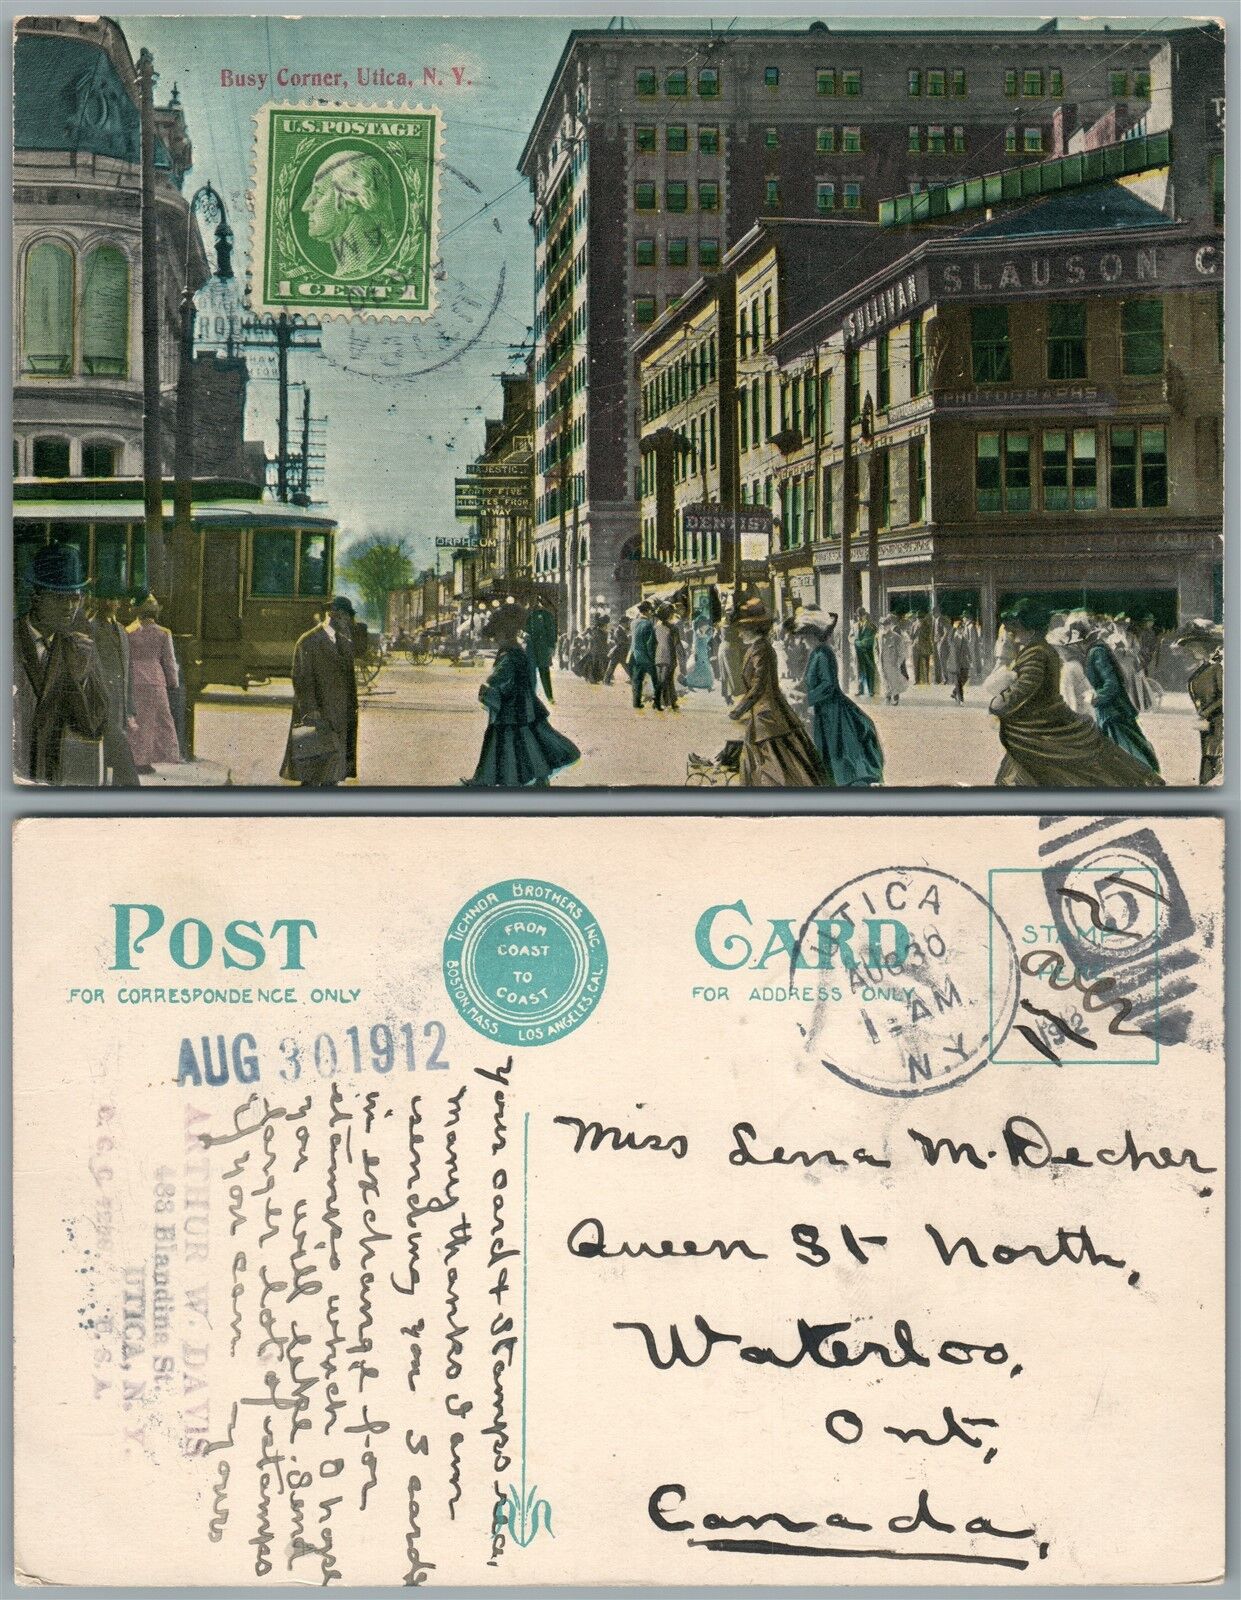 Busy Corner, Utica, N. Y.
U.S. POSTAGE
1 CENT 1
SLAUSON C
SULLIVAN
PHOTOGRAPHS
MAJESTIC
FORTY FIVE
MINUTES FROM
B'WAY
ORPHEUM
DENTIST
POST CARD
FOR CORRESPONDENCE ONLY
FOR ADDRESS ONLY
TICHNOR BROTHERS INC.
BOSTON, MASS. LOS ANGELES, CAL.
FROM
COAST
TO
COAST
UTICA
AUG 30
1 - AM
N.Y.
1912
5
STAMP
AUG 30 1912
your card & stamps rec.
many thanks I am
sending you 3 cards
in exchange for
stamps which I hope
you will like. Send
larger lot of stamps
if you can yours
ARTHUR W. DAVIS
483 Blandina St.
UTICA, N. Y.
U.S.A.
Miss Lena M. Decher,
Queen St North,
Waterloo,
Ont,
Canada,